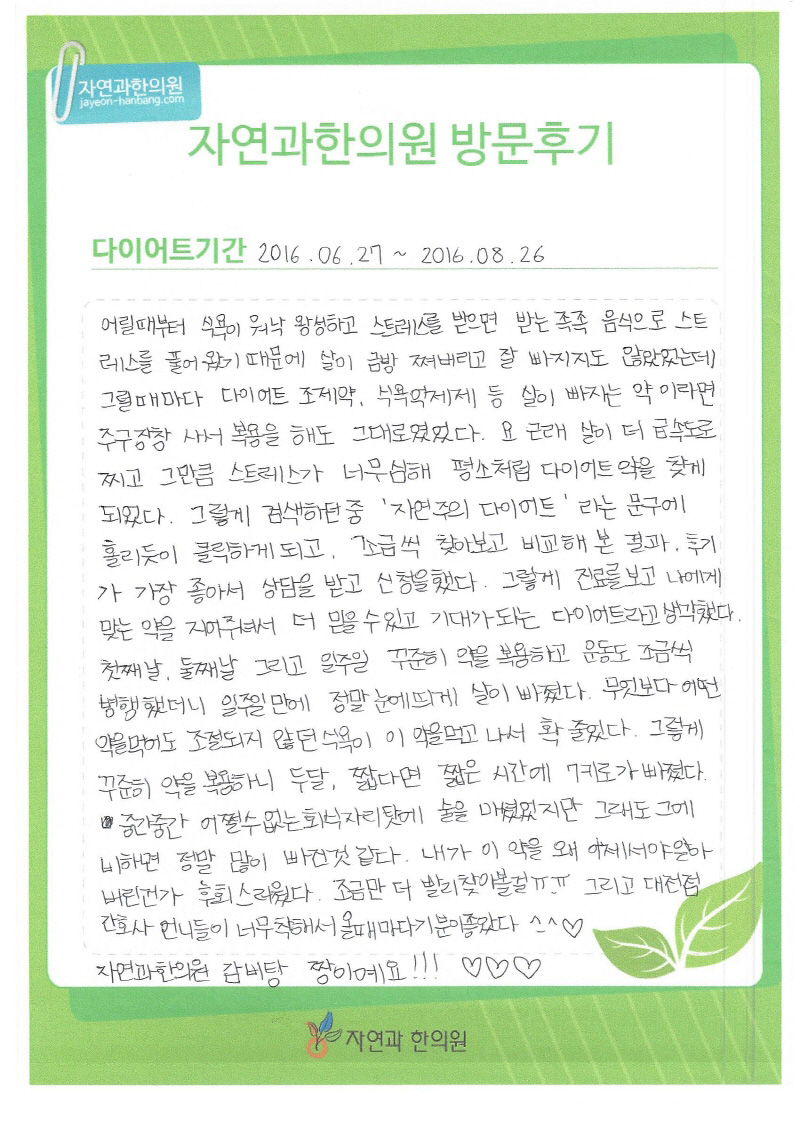 자연과한의원
jayeon-hanbang.com
자연과한의원 방문후기
다이어트기간 2016.06.27 ~ 2016.08.26
어릴때부터 식욕이 워낙 왕성하고 스트레스를 받으면 받는족족 음식으로 스트
레스를 풀어왔기 때문에 살이 금방 쪄버리고 잘 빠지지도 않았었는데
그럴때마다 다이어트 조제약, 식욕억제제 등 살이 빠지는 약이라면
주구장창 사서 복용을 해도 그대로였었다. 요 근래 살이 더 급속도로
찌고 그만큼 스트레스가 너무심해 평소처럼 다이어트약을 찾게
되었다. 그렇게 검색하던중 '자연주의 다이어트' 라는 문구에
홀리듯이 클릭하게되고, 조금씩 찾아보고 비교해 본 결과, 후기
가 가장 좋아서 상담을 받고 신청을했다. 그렇게 진료를보고 나에게
맞는 약을 지어주셔서 더 믿을수있고 기대가되는 다이어트라고생각했다.
첫째날, 둘째날 그리고 일주일 꾸준히 약을 복용하고 운동도 조금씩
병행했더니 일주일만에 정말눈에띄게 살이빠졌다. 무엇보다 어떤
약을먹어도 조절되지 않던식욕이 이 약을먹고 나서 확 줄었다. 그렇게
꾸준히 약을 복용하니 두달, 짧다면 짧은 시간에 7키로가빠졌다.
중간중간 어쩔수없는회식자리탓에 술을 마셨었지만 그래도 그에
비하면 정말 많이 빠진것 같다. 내가 이 약을 왜 이제서야알아
버린건가 후회스러웠다. 조금만 더 빨리찾아볼걸ㅠㅠ 그리고 대전점
간호사 언니들이 너무착해서 올때마다기분이좋았다 ^^♡
자연과한의원 감비탕 짱이예요!!! ♡♡♡
자연과 한의원